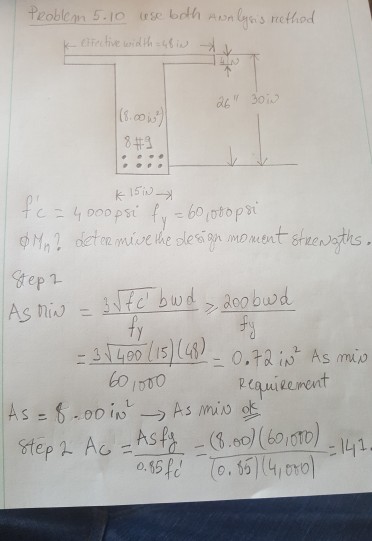 Problem 5.10 use both analysis method
effective width = 48 in
4 in
26" 30 in
(8.00 in²)
8#9
15 in
f'c = 4000psi fy = 60,000psi
ØMn? determine the design moment strengths.
Step 1
As min = 3√fc' bwd / fy ≥ 200bwd / fy
= 3√400 (15)(48) / 60,000 = 0.72 in² As min
Requirement
As = 8.00 in² → As min ok
Step 2 Ac = Asfy / 0.85fc' = (8.00)(60,000) / (0.85)(4,000) = 141.